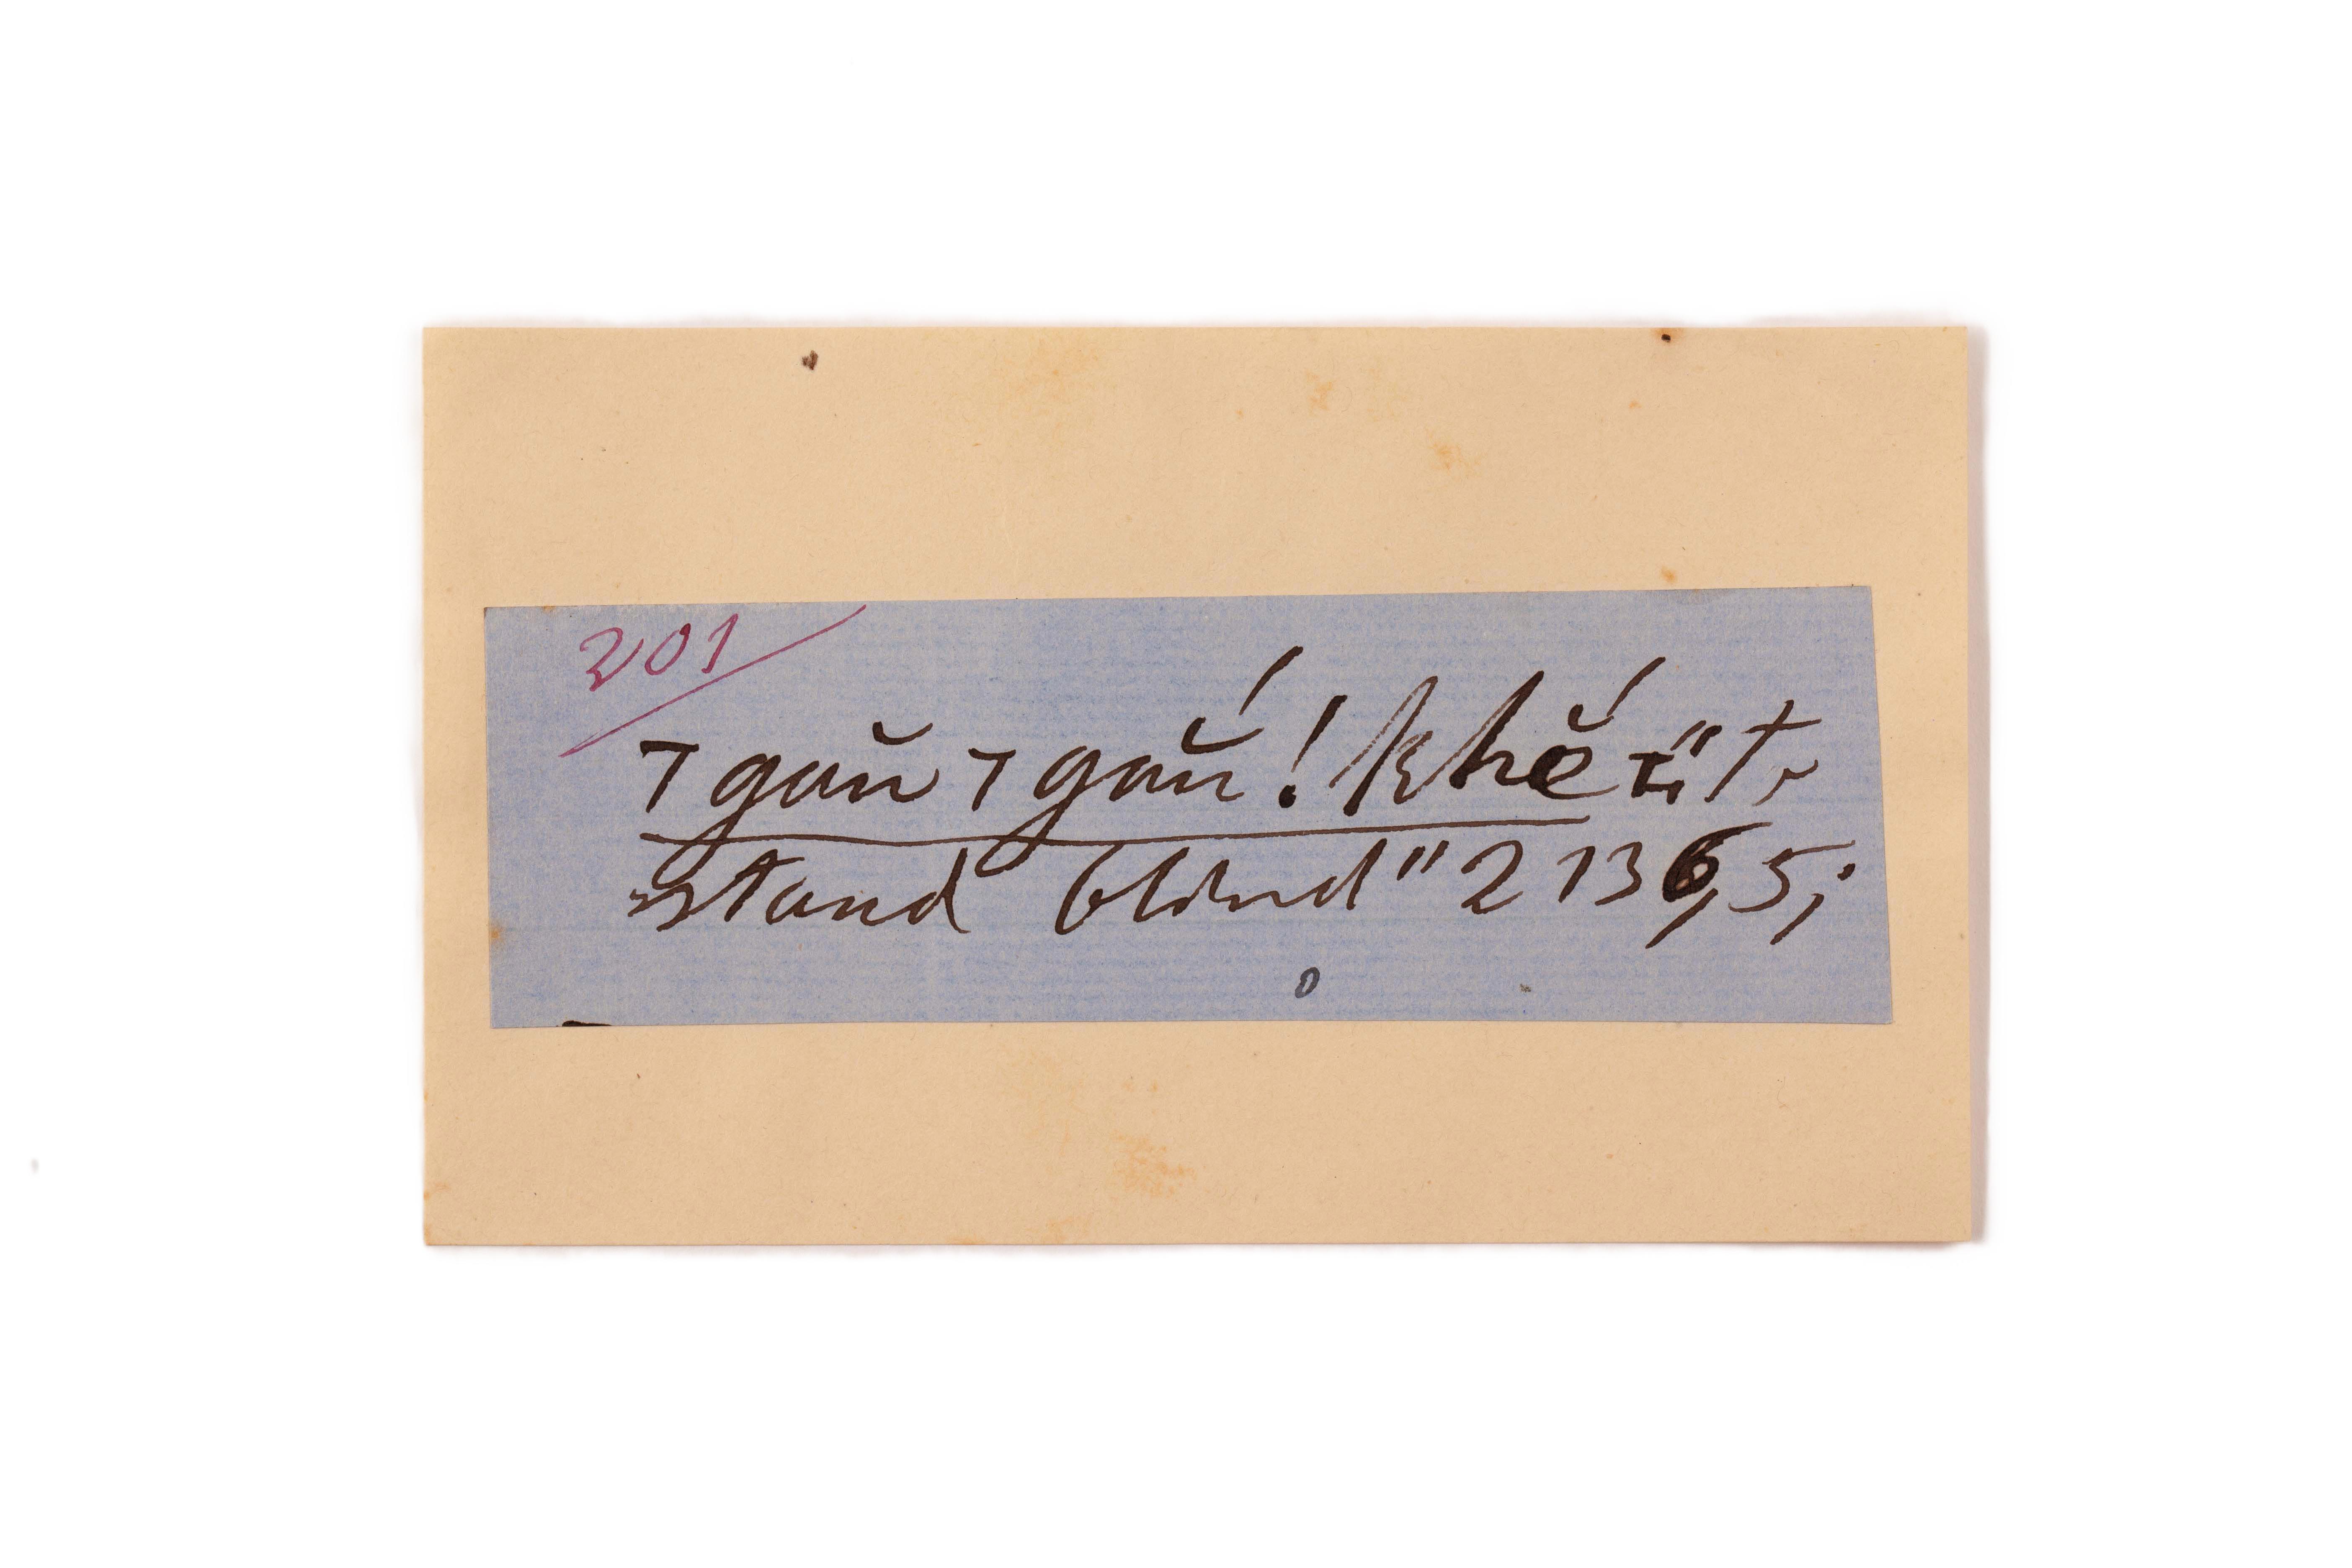 201
⊤gaŭ⊤gaŭ́! khĕ́ ⊤ " to
stand blind" 2136, 5;